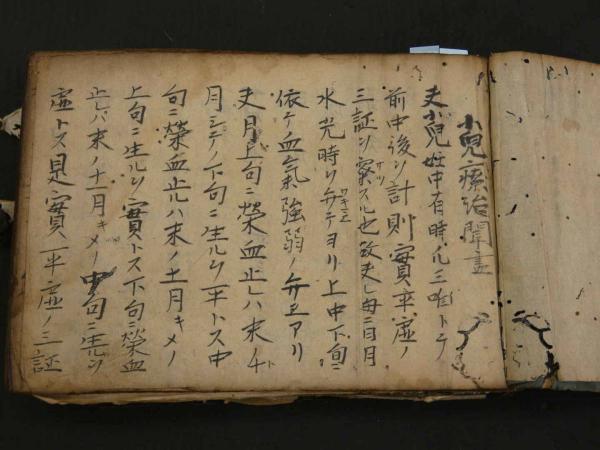 小児療治聞書
夫小児妊中有時ハ三唯トテ
前中後ヲ計則實平虚ノ
三証ヲ察スル也故夫レ毎二日月
水光時ヲ弁テヨリ上中下旬ニ
依テ血氣強弱ノ弁エアリ
夫月上旬ニ榮血止レハ末ノ
月シテノ下旬ニ生ルヲ平トス中
旬ニ榮血止レハ末ノ十一月キメノ
上旬ニ生ルヲ實トス下旬ニ榮血
止レハ末ノ十一月キメノ中旬ニ生ルヲ
虚トス是實平虚ノ三証